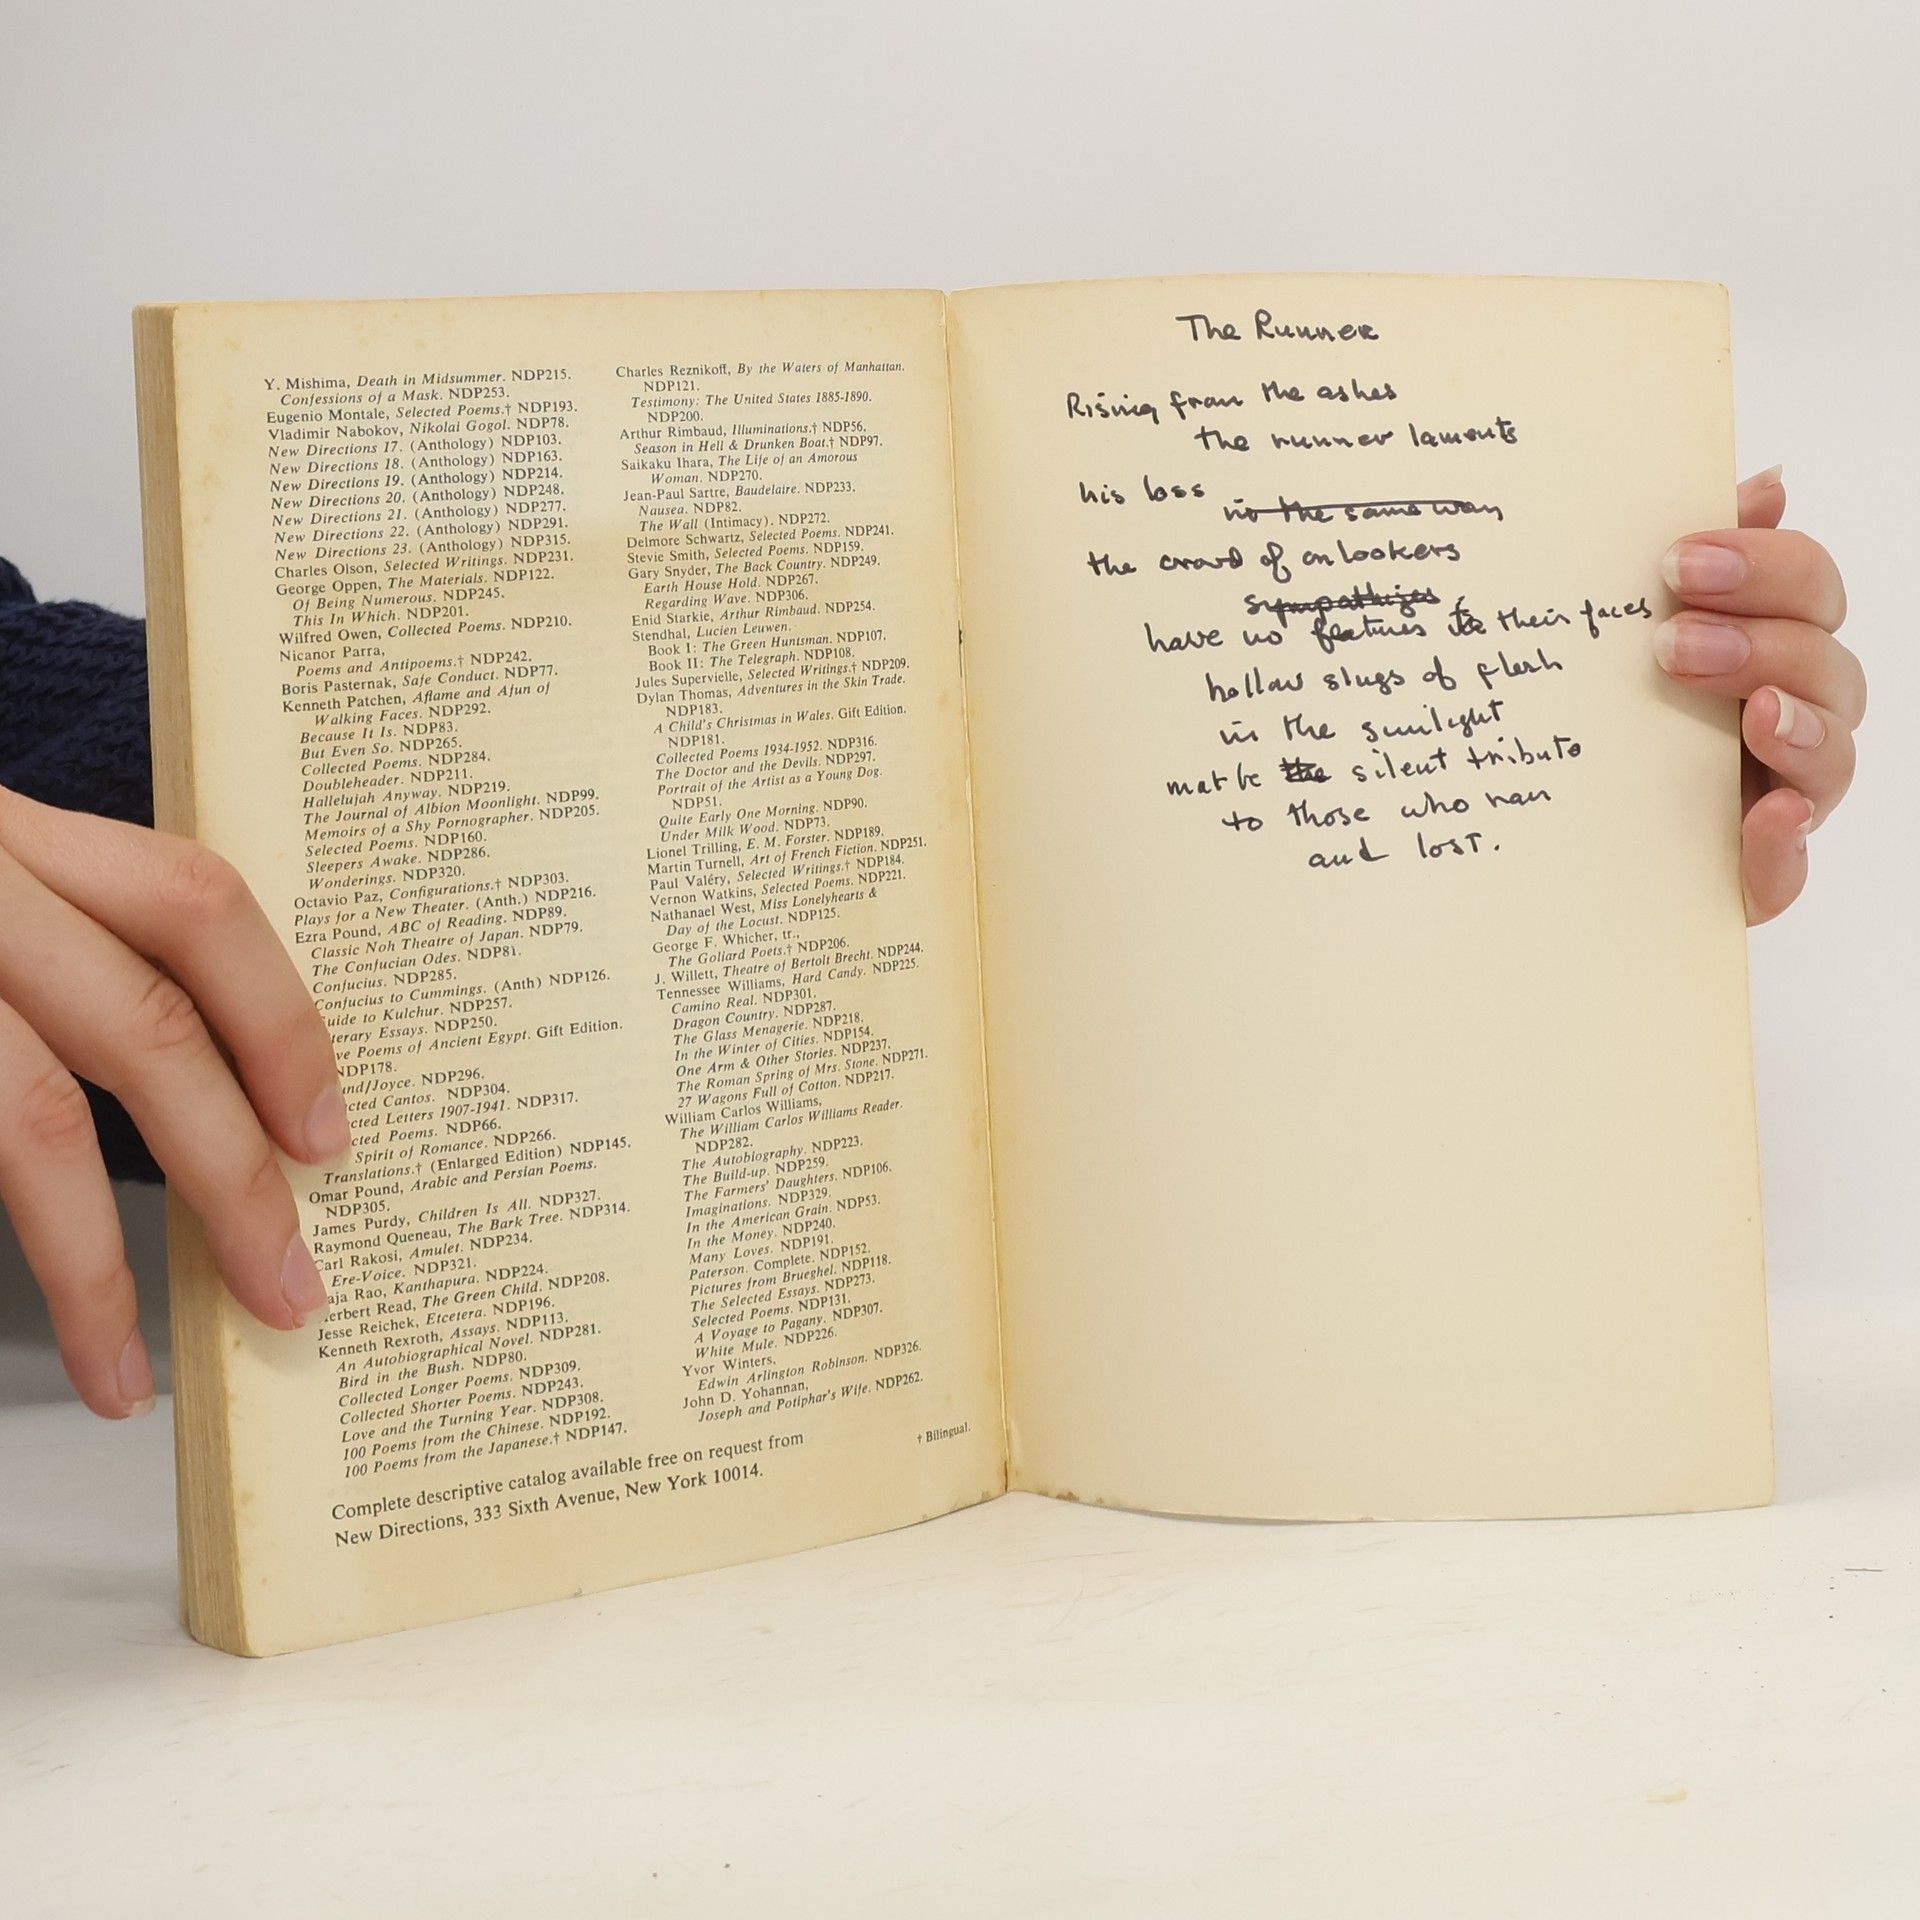 Y. Mishima, Death in Midsummer. NDP215.
Confessions of a Mask. NDP253.
Eugenio Montale, Selected Poems.† NDP193.
Vladimir Nabokov, Nikolai Gogol. NDP78.
New Directions 17. (Anthology) NDP103.
New Directions 18. (Anthology) NDP163.
New Directions 19. (Anthology) NDP214.
New Directions 20. (Anthology) NDP248.
New Directions 21. (Anthology) NDP277.
New Directions 22. (Anthology) NDP291.
New Directions 23. (Anthology) NDP315.
Charles Olson, Selected Writings. NDP231.
George Oppen, The Materials. NDP122.
Of Being Numerous. NDP245.
This In Which. NDP201.
Wilfred Owen, Collected Poems. NDP210.
Nicanor Parra,
Poems and Antipoems.† NDP242.
Boris Pasternak, Safe Conduct. NDP77.
Kenneth Patchen, Aflame and Afun of
Walking Faces. NDP292.
Because It Is. NDP83.
But Even So. NDP265.
Collected Poems. NDP284.
Doubleheader. NDP211.
Hallelujah Anyway. NDP219.
The Journal of Albion Moonlight. NDP99.
Memoirs of a Shy Pornographer. NDP205.
Selected Poems. NDP160.
Sleepers Awake. NDP286.
Wonderings. NDP320.
Octavio Paz, Configurations.† NDP303.
Plays for a New Theater. (Anth.) NDP216.
Ezra Pound, ABC of Reading. NDP89.
Classic Noh Theatre of Japan. NDP79.
The Confucian Odes. NDP81.
Confucius. NDP285.
Confucius to Cummings. (Anth) NDP126.
uide to Kulchur. NDP257.
terary Essays. NDP250.
ve Poems of Ancient Egypt. Gift Edition.
NDP178.
und/Joyce. NDP296.
cted Cantos. NDP304.
cted Letters 1907-1941. NDP317.
cted Poems. NDP66.
Spirit of Romance. NDP266.
Translations.† (Enlarged Edition) NDP145.
Omar Pound, Arabic and Persian Poems.
NDP305.
James Purdy, Children Is All. NDP327.
Raymond Queneau, The Bark Tree. NDP314.
Carl Rakosi, Amulet. NDP234.
Ere-Voice. NDP321.
aja Rao, Kanthapura. NDP224.
erbert Read, The Green Child. NDP208.
Jesse Reichek, Etcetera. NDP196.
Kenneth Rexroth, Assays. NDP113.
An Autobiographical Novel. NDP281.
Bird in the Bush. NDP80.
Collected Longer Poems. NDP309.
Collected Shorter Poems. NDP243.
Love and the Turning Year. NDP308.
100 Poems from the Chinese. NDP192.
100 Poems from the Japanese.† NDP147.
Charles Reznikoff, By the Waters of Manhattan.
NDP121.
Testimony: The United States 1885-1890.
NDP200.
Arthur Rimbaud, Illuminations.† NDP56.
Season in Hell & Drunken Boat.† NDP97.
Saikaku Ihara, The Life of an Amorous
Woman. NDP270.
Jean-Paul Sartre, Baudelaire. NDP233.
Nausea. NDP82.
The Wall (Intimacy). NDP272.
Delmore Schwartz, Selected Poems. NDP241.
Stevie Smith, Selected Poems. NDP159.
Gary Snyder, The Back Country. NDP249.
Earth House Hold. NDP267.
Regarding Wave. NDP306.
Enid Starkie, Arthur Rimbaud. NDP254.
Stendhal, Lucien Leuwen.
Book I: The Green Huntsman. NDP107.
Book II: The Telegraph. NDP108.
Jules Supervielle, Selected Writings.† NDP209.
Dylan Thomas, Adventures in the Skin Trade.
NDP183.
A Child's Christmas in Wales. Gift Edition.
NDP181.
Collected Poems 1934-1952. NDP316.
The Doctor and the Devils. NDP297.
Portrait of the Artist as a Young Dog.
NDP51.
Quite Early One Morning. NDP90.
Under Milk Wood. NDP73.
Lionel Trilling, E. M. Forster. NDP189.
Martin Turnell, Art of French Fiction. NDP251.
Paul Valéry, Selected Writings.† NDP184.
Vernon Watkins, Selected Poems. NDP221.
Nathanael West, Miss Lonelyhearts &
Day of the Locust. NDP125.
George F. Whicher, tr.,
The Goliard Poets.† NDP206.
J. Willett, Theatre of Bertolt Brecht. NDP244.
Tennessee Williams, Hard Candy. NDP225.
Camino Real. NDP301.
Dragon Country. NDP287.
The Glass Menagerie. NDP218.
In the Winter of Cities. NDP154.
One Arm & Other Stories. NDP237.
The Roman Spring of Mrs. Stone. NDP271.
27 Wagons Full of Cotton. NDP217.
William Carlos Williams,
The William Carlos Williams Reader.
NDP282.
The Autobiography. NDP223.
The Build-up. NDP259.
The Farmers' Daughters. NDP106.
Imaginations. NDP329.
In the American Grain. NDP53.
In the Money. NDP240.
Many Loves. NDP191.
Paterson. Complete. NDP152.
Pictures from Brueghel. NDP118.
The Selected Essays. NDP273.
Selected Poems. NDP131.
A Voyage to Pagany. NDP307.
White Mule. NDP226.
Yvor Winters,
Edwin Arlington Robinson. NDP326.
John D. Yohannan,
Joseph and Potiphar's Wife. NDP262.
† Bilingual.
Complete descriptive catalog available free on request from
New Directions, 333 Sixth Avenue, New York 10014.
The Runner
Rising from the ashes
the runner laments
his loss
in the same way
the crowd of onlookers
sympathizes
have no features to their faces
hollow slugs of flesh
in the sunlight
the silent tribute
to those who ran
and lost.